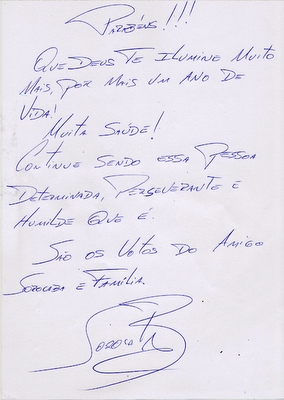 Parabéns!!!
Que Deus te ilumine muito
mais, por mais um ano de
vida!
Muita saúde!
Continue sendo essa pessoa
determinada, perseverante e
humilde que é.
São os votos do amigo
Sorocaba e família.